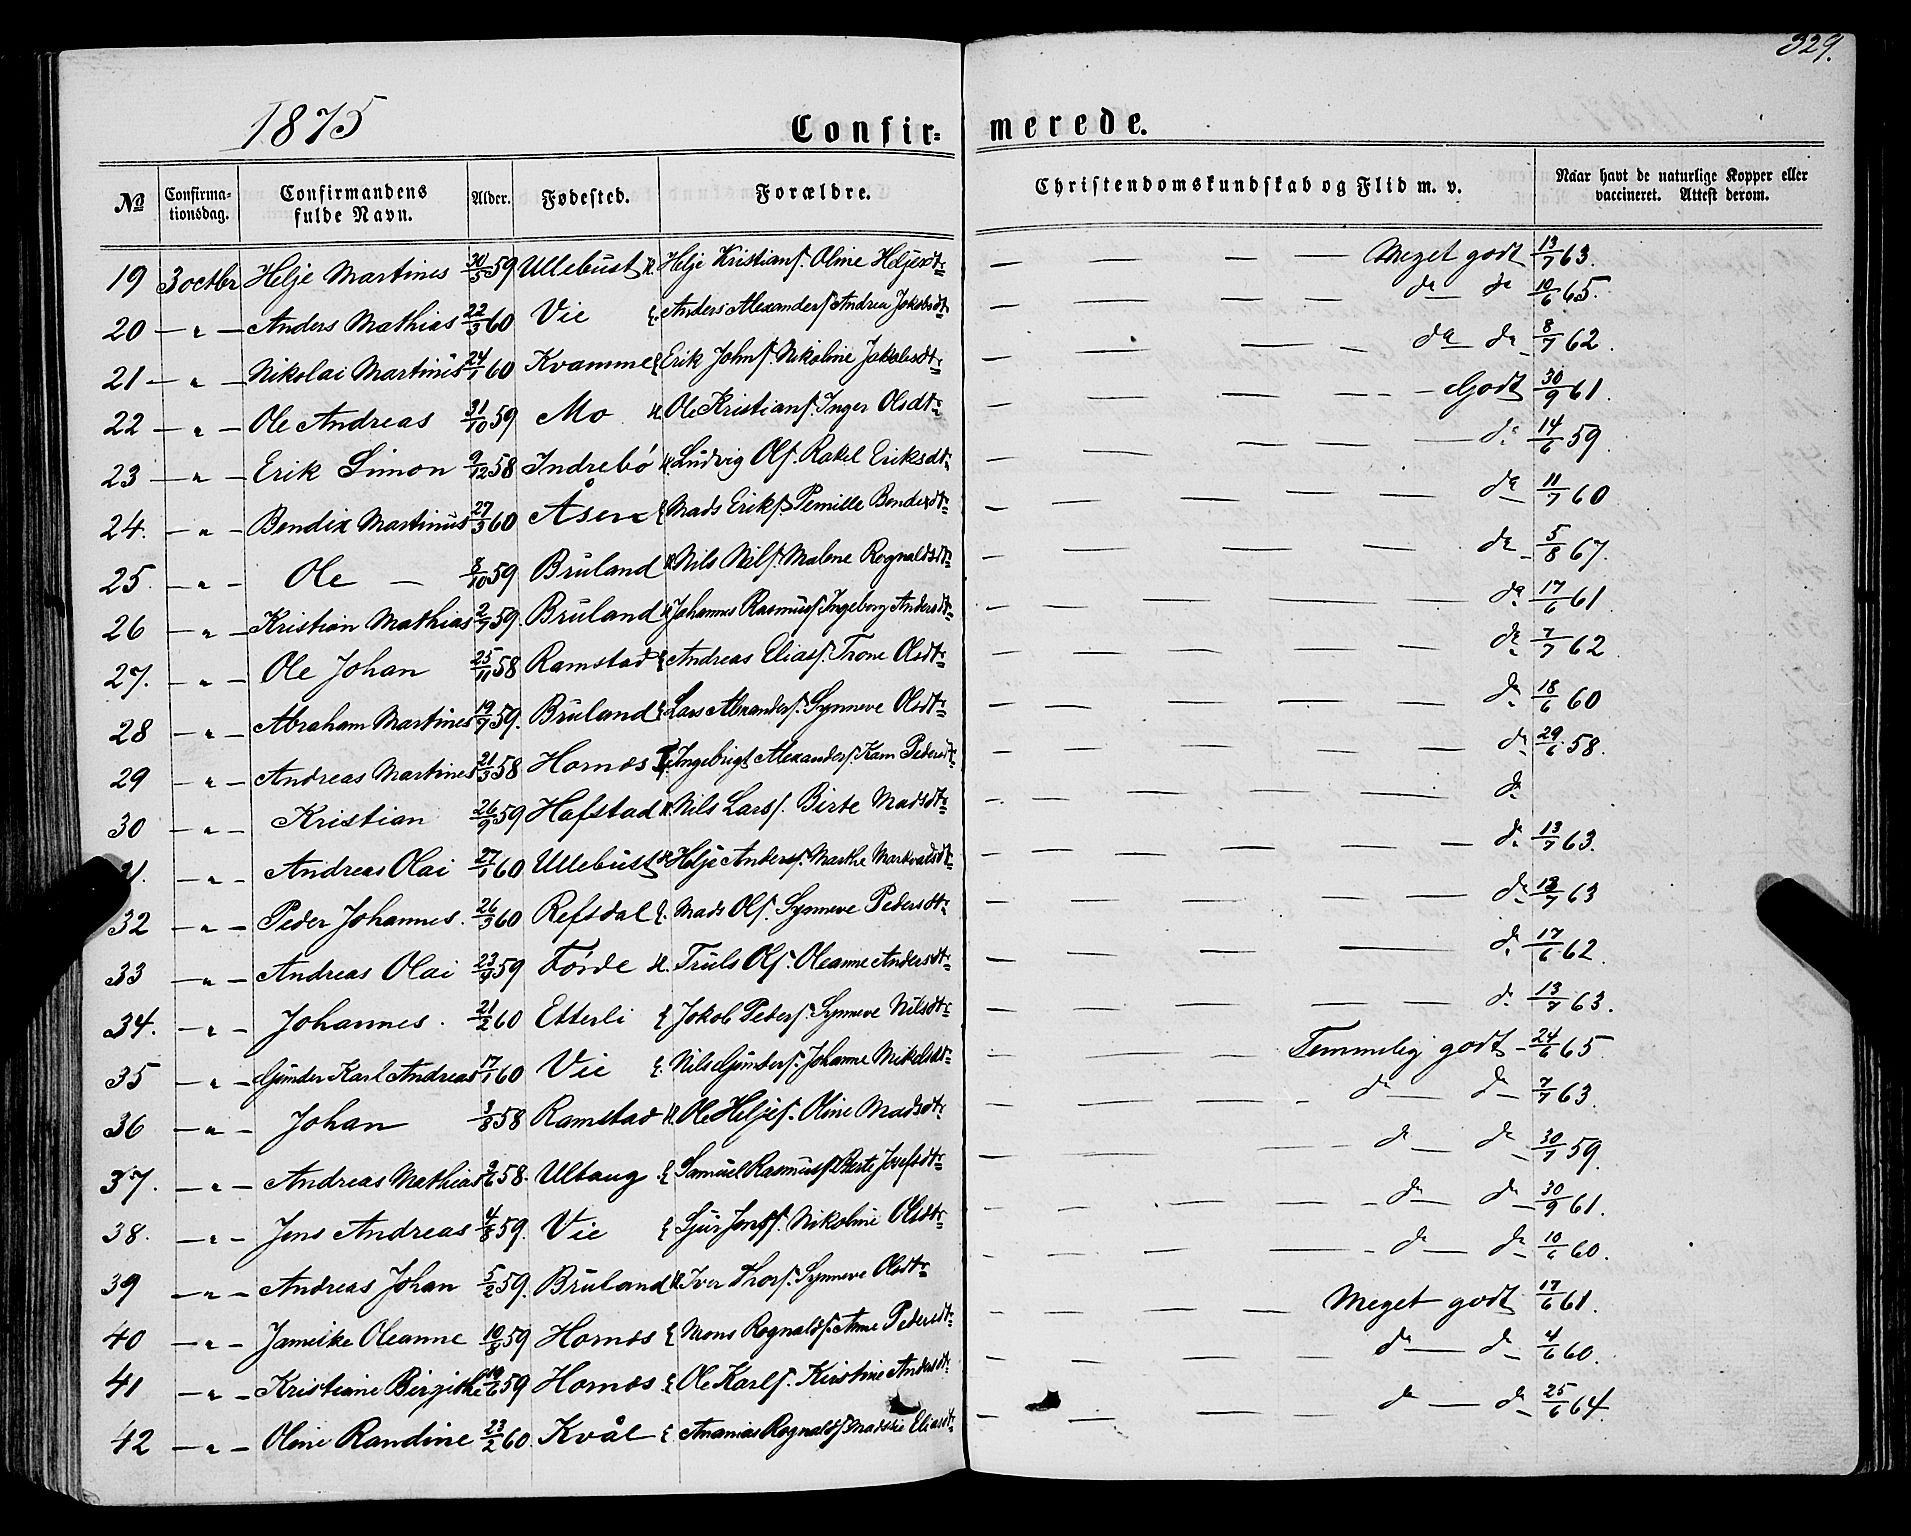 329.
1875
Confir-
merede.
№ Confirma-tionsdag. Confirmandens fulde Navn. Alder. Fødested. Forældre. Christendomskundskab og Flid m. v. Naar havt de naturlige Kopper eller vaccineret. Attest derom.
19 3 octbr Helje Martines 30/5 59 Ullebust H. Helje Kristians. Oline Heljesdtr — — — — Meget godt 13/7 63.
20 — " — Anders Mathias 22/3 60 Vie E. Anders Alexanders. Andrea Jakobsdtr — — — — do — do 10/6 65.
21 — " — Nikolai Martinus 24/1 60 Kvamme E Erik Johns. Nikoline Jakobsdtr — — — — do — do 8/7 62.
22 — " — Ole Andreas 31/10 59 Mo H. Ole Kristians. Inger Olsdtr — — — — Godt 30/9 61.
23 — " — Erik Simon 9/12 58 Indrebö H. Ludvig Ols. Rakel Eriksdtr — — — — do 14/6 59.
24. — " — Bendix Martinus 27/3 60 Åsen E Mads Eriks. Pernille Bendexdtr — — — — do 11/7 60
25. — " — Ole — 8/10 59 Bruland H Nils Nils. Malene Rognaldsdtr — — — — do 5/8 67.
26 — " — Kristian Mathias 2/7 59. Bruland H Johannes Rasmus. Ingeborg Andersdtr — — — — do 17/6 61.
27. — " — Ole Johan 25/11 58 Ramstad E Andreas Elias. Trone Olsdtr — — — — do 7/7 62
28 — " — Abraham Martines 19/7 59. Bruland E Lars Alexanders. Synneve Olsdtr — — — — do 18/6 60
29 — " — Andreas Martines 21/3 58 Hornes Ingebrigt Alexanders. Kari Pedersdtr — — — — do 29/6 58.
30 — " — Kristian 26/9 59 Hafstad H Nils Lars. Birte Madsdtr — — — — do
31. — " — Andreas Olai 27/1 60 Ullebust H Helje Anders. Marthe Markvadsdtr — — — — do 13/7 63.
32 — " — Peder Johannes. 26/3 60 Refsdal E. Mads Ols. Synneve Pedersdtr — — — — do 13/7 63
33 — " — Andreas Olai 23/9 59 Förde H. Truls Ols. Oleanne Andersdtr — — — — do 17/6 62.
34. — " — Johannes. 21/2 60 Etterli E Jokob Peders. Synneve Nilsdtr — — — — do 13/7 63.
35 — " — Gunder Karl Andreas 17/1 60 Vie E. Nils Gunders. Johanne Mikelsdtr — — — — Temmelig godt 24/6 65
36 — " — Johan 3/8 58 Ramstad H. Ole Heljes. Oline Madsdtr — — — — do — do 7/7 63.
37. — " — Andreas Mathias 9/6 58. Ultang E Samuel Rasmus. Berte Josefsdtr — — — — do — do 30/7 59.
38. — " — Jens Andreas 4/8 59. Vie E Sjur Jens. Nikoline Olsdtr — — — — do — do 30/9 61.
39 — " — Andreas Johan 5/2 59. Bruland H. Iver Thors. Synneve Olsdtr — — — — do — do 10/6 60.
40 — " — Jameike Oleanne 10/8 59 Hornes E Mons Rognalds. Anne Pedersdtr — — — — Meget godt 17/6 61.
41 — " — Kristiane Birgithe 19/6 59 Hornes E Ole Karls. Kirstine Andersdtr — — — — do — do 4/6 60.
42 — " — Oline Randine 23/2 60. Kvål E. Ananias Rognalds. Madskri Eliasdtr — — — — do — do 25/6 64.